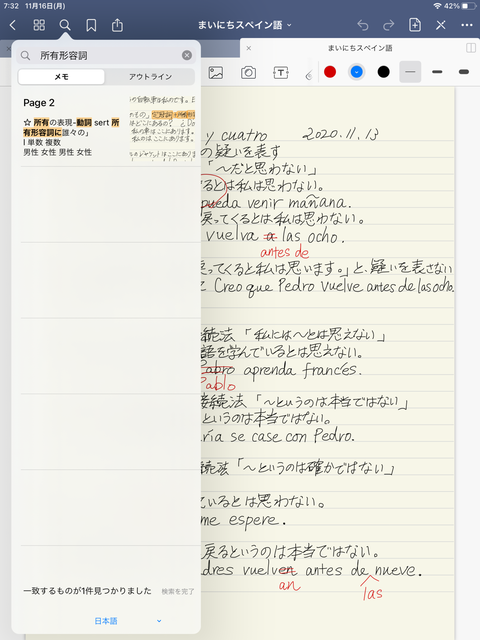 7:32 11月16日(月)
42%
まいにちスペイン語
まいにちスペイン語
所有形容詞
メモ
アウトライン
Page 2
☆ 所有の表現-動詞 sert 所
有形容詞に誰々の」
I 単数 複数
男性 女性 男性 女性
一致するものが1件見つかりました
検索を完了
日本語
y cuatro 2020.11.13
の疑いを表す
「〜だと思わない」
るとは私は思わない。
pueda venir mañana.
戻ってくるとは私は思わない。
vuelva a las ocho.
antes de
戻ってくると私は思います。」と、疑いを表さない
Creo que Pedro vuelve antes de las ocho.
続法 「私には〜とは思えない」
語を学んでいるとは思えない。
Pabro aprenda francés.
Pablo
接続法 「〜というのは本当ではない」
というのは本当ではない。
ría se case con Pedro.
続法 「〜というのは確かではない」
ているとは思わない。
me espere.
戻るというのは本当ではない。
dres vuelven antes de nueve.
an
las